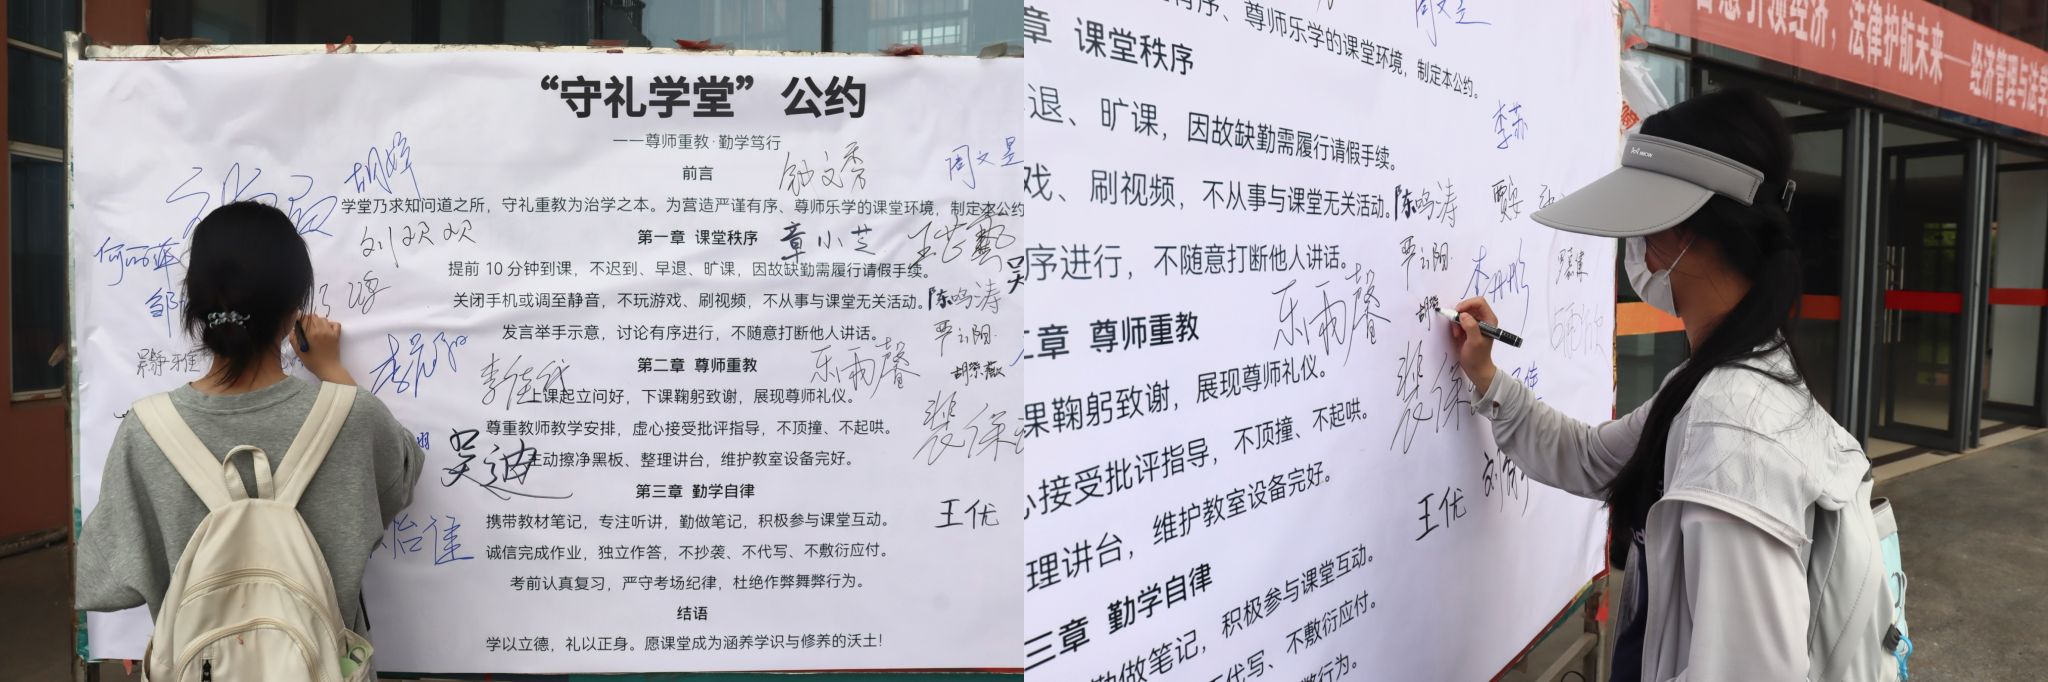 “守礼学堂”公约
——尊师重教·勤学笃行
前言
学堂乃求知问道之所，守礼重教为治学之本。为营造严谨有序、尊师乐学的课堂环境，制定本公约
第一章 课堂秩序
提前 10 分钟到课，不迟到、早退、旷课，因故缺勤需履行请假手续。
关闭手机或调至静音，不玩游戏、刷视频，不从事与课堂无关活动。
发言举手示意，讨论有序进行，不随意打断他人讲话。
第二章 尊师重教
上课起立问好，下课鞠躬致谢，展现尊师礼仪。
尊重教师教学安排，虚心接受批评指导，不顶撞、不起哄。
主动擦净黑板、整理讲台，维护教室设备完好。
第三章 勤学自律
携带教材笔记，专注听讲，勤做笔记，积极参与课堂互动。
诚信完成作业，独立作答，不抄袭、不代写、不敷衍应付。
考前认真复习，严守考场纪律，杜绝作弊舞弊行为。
结语
学以立德，礼以正身。愿课堂成为涵养学识与修养的沃土！
胡婷
周文昱
刘欢欢
章小芝
何丽萍
邹
吴
陈鸣涛
乐雨馨
吴迪
王优
怡佳
有序、尊师乐学的课堂环境，制定本公约。
章 课堂秩序
退、旷课，因故缺勤需履行请假手续。
戏、刷视频，不从事与课堂无关活动。
序进行，不随意打断他人讲话。
二章 尊师重教
课鞠躬致谢，展现尊师礼仪。
心接受批评指导，不顶撞、不起哄。
理讲台，维护教室设备完好。
三章 勤学自律
勤做笔记，积极参与课堂互动。
不代写、不敷衍应付。
弊行为。
李苏
陈鸣涛
乐雨馨
王优
引领经济，法律护航未来——经济管理与法学